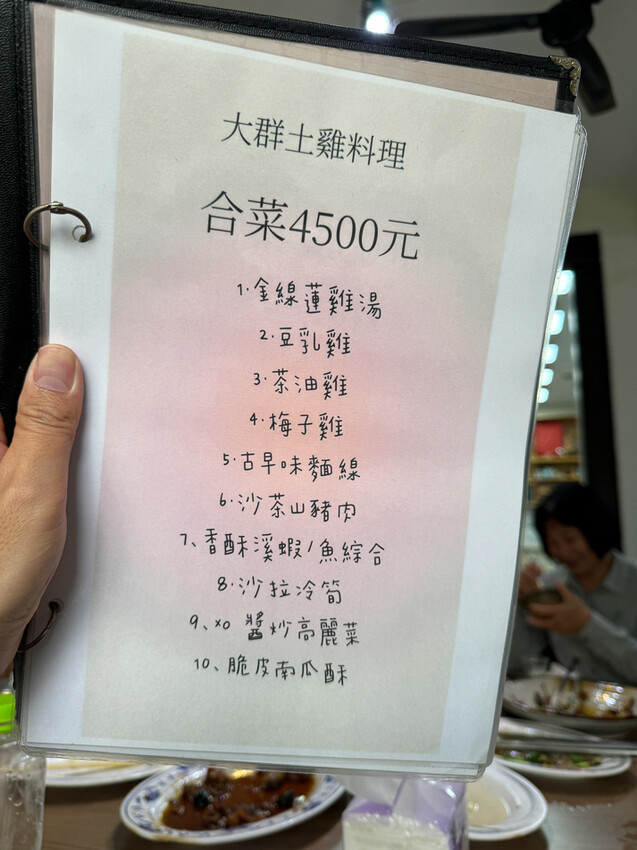 大群土雞料理
合菜4500元
1.金線蓮雞湯
2.豆乳雞
3.茶油雞
4.梅子雞
5.古早味麵線
6.沙茶山豬肉
7、香酥溪蝦/魚綜合
8.沙拉冷筍
9、xo 醬炒高麗菜
10、脆皮南瓜酥